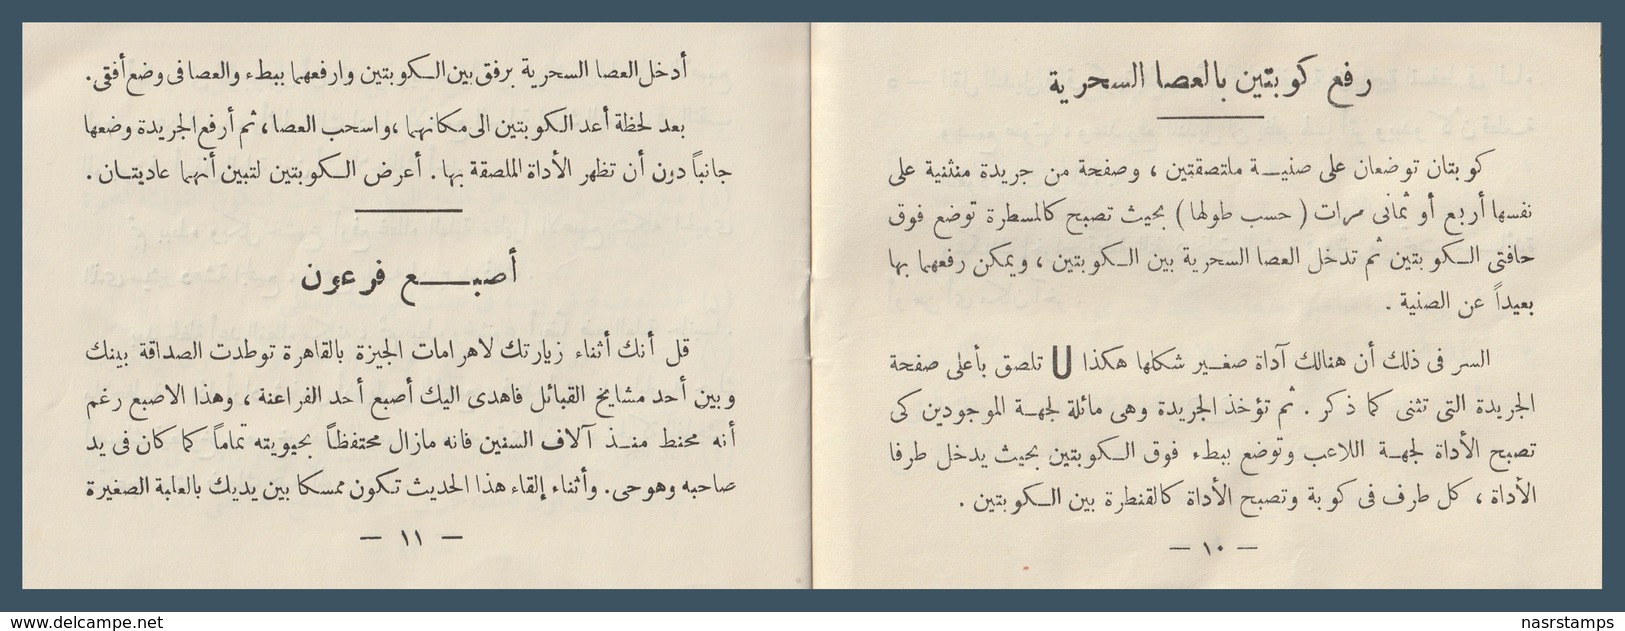 رفع كوبتين بالعصا السحرية
كوبتان توضعان على صنية ملتصقتين ، وصفحة من جريدة منثنية على
نفسها أربع أو ثمانى مرات ( حسب طولها ) بحيث تصبح كالمسطرة توضع فوق
حافتى الكوبتين ثم تدخل العصا السحرية بين الكوبتين ، ويمكن رفعهما بها
بعيداً عن الصنية .
السر فى ذلك أن هنالك آداة صغير شكلها هكذا U تلصق بأعلى صفحة
الجريدة التى تثنى كما ذكر . ثم تؤخذ الجريدة وهى مائلة لجهة الموجودين كى
تصبح الأداة لجهة اللاعب وتوضع ببطء فوق الكوبتين بحيث يدخل طرفا
الأداة ، كل طرف فى كوبة وتصبح الأداة كالقنطرة بين الكوبتين .
— ١٠ —
أدخل العصا السحرية برفق بين الكوبتين وارفعهما ببطء والعصا فى وضع أفقى .
بعد لحظة أعد الكوبتين الى مكانهما ، واسحب العصا ، ثم أرفع الجريدة وضعها
جانباً دون أن تظهر الأداة الملصقة بها . أعرض الكوبتين لتبين أنهما عاديتان .
أصبع فرعون
قل أنك أثناء زيارتك لاهرامات الجيزة بالقاهرة توطدت الصداقة بينك
وبين أحد مشايخ القبائل فاهدى اليك أصبع أحد الفراعنة ، وهذا الاصبع رغم
أنه محنط منذ آلاف السنين فانه مازال محتفظاً بحيويته تماماً كما كان فى يد
صاحبه وهو حى . وأثناء إلقاء هذا الحديث تكون ممسكا بين يديك بالعلبة الصغيرة
— ١١ —
www.delcampe.net
nasrstamps